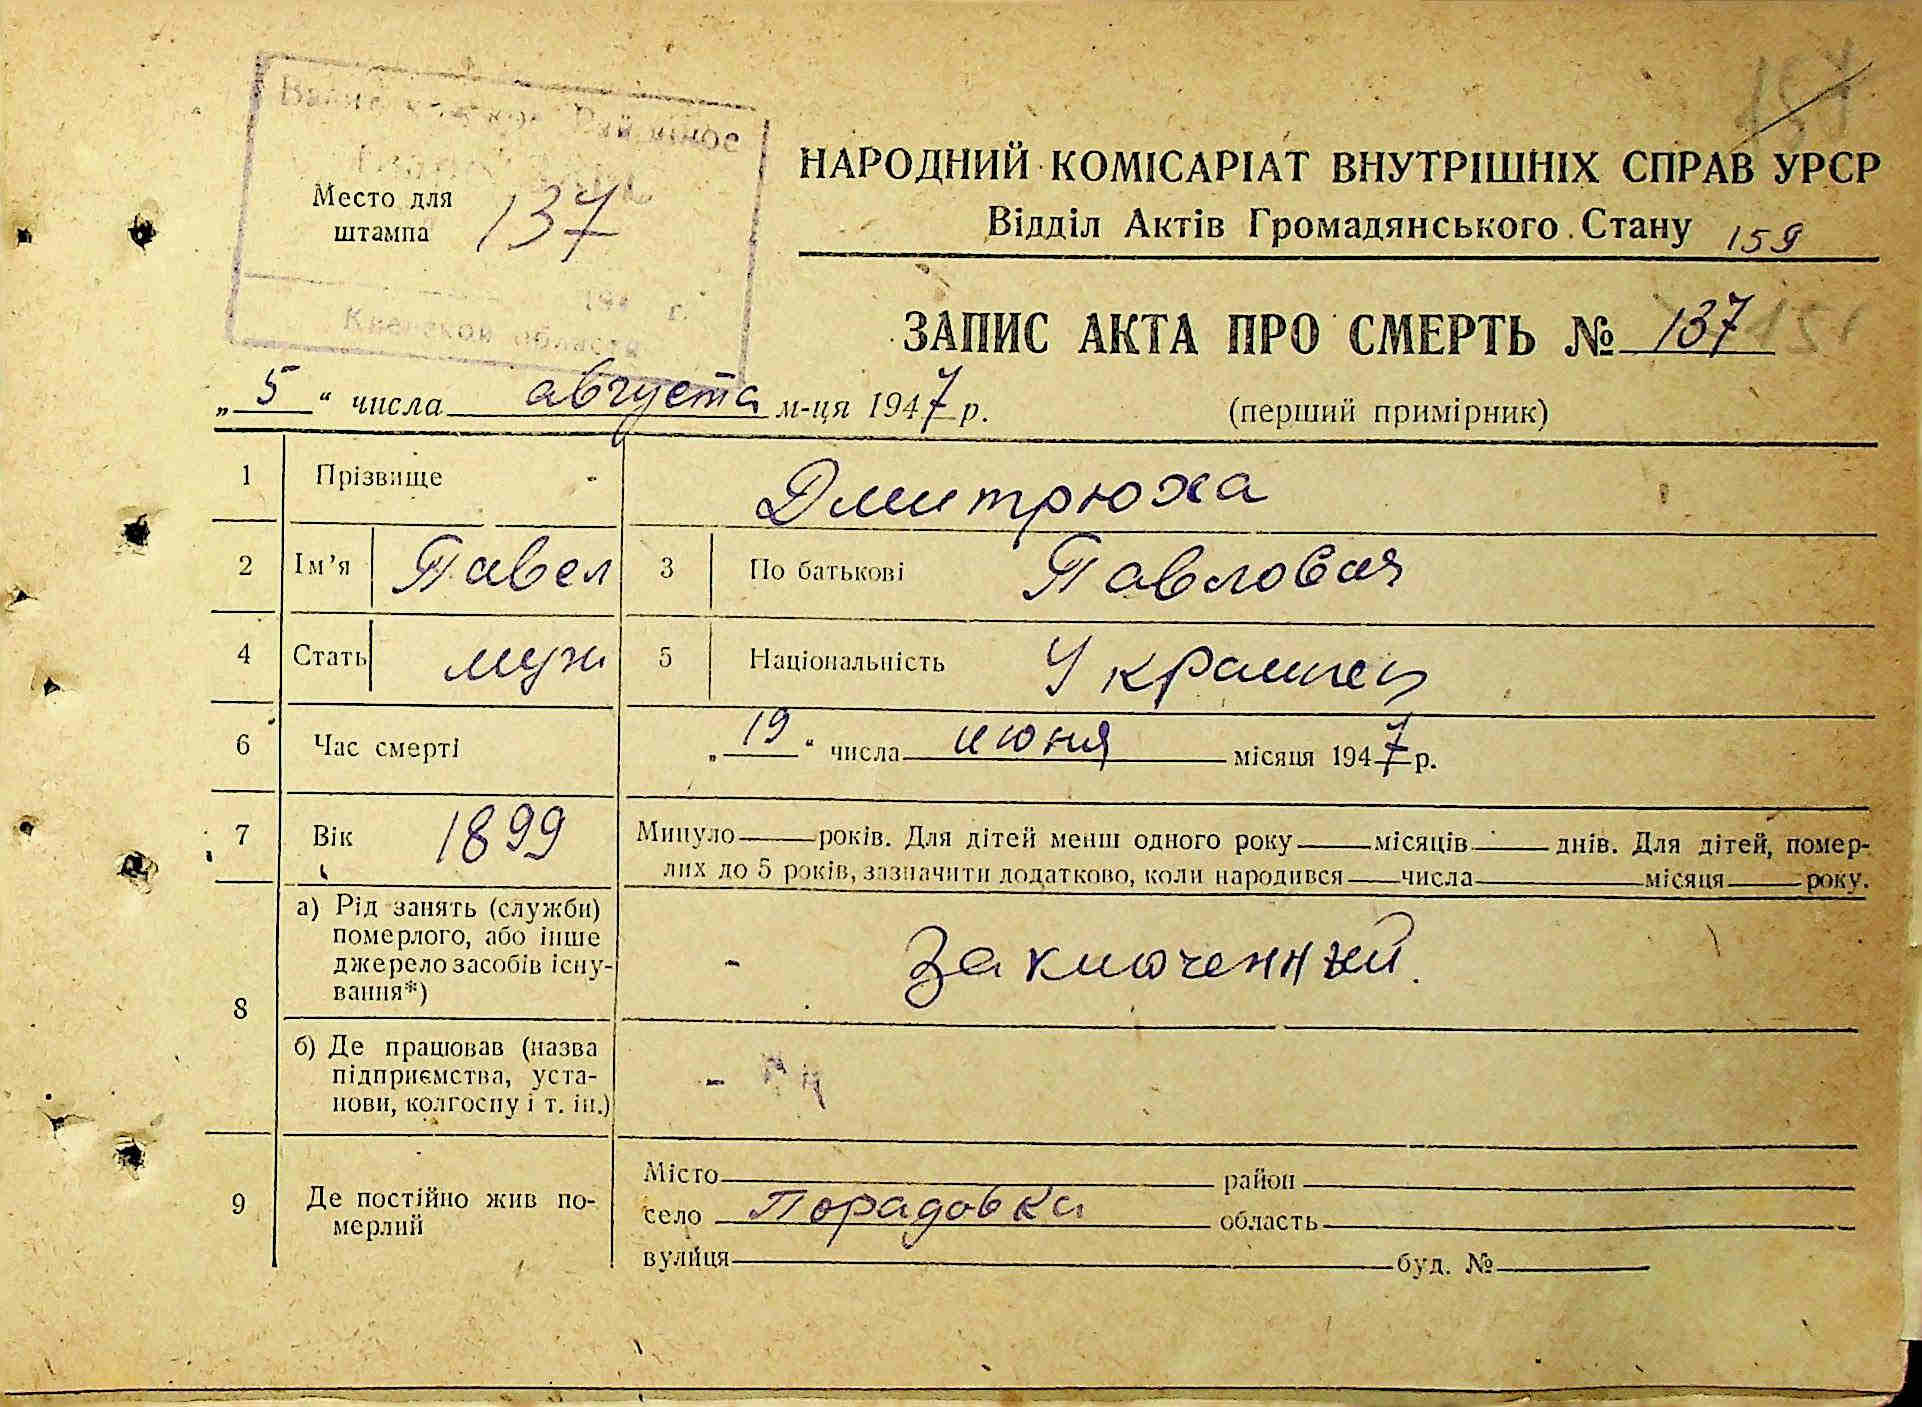 137
Место для
штампа
НАРОДНИЙ КОМІСАРІАТ ВНУТРІШНІХ СПРАВ УРСР
Відділ Актів Громадянського Стану 159
г.
Киевской области
ЗАПИС АКТА ПРО СМЕРТЬ № 137
„5“ числа августа м-ця 1947 р.
(перший примірник)
1 Прізвище - Дмитрюха
2 Ім'я Павел 3 По батькові Павлович
4 Стать муж 5 Національність Украинец
6 Час смерті „19“ числа июня місяця 1947 р.
7 Вік 1899 Минуло року. Для дітей менш одного року місяців днів. Для дітей, помер-
лих до 5 років, зазначити додатково, коли народився числа місяця року.
8 а) Рід занять (служби)
померлого, або інше
джерело засобів існу-
вання*)
- Заключенный.
б) Де працював (назва
підприємства, уста-
нови, колгоспу і т. ін.)
-
9 Де постійно жив по-
мерлий
Місто район
село Порадовка область
вулиця буд. №